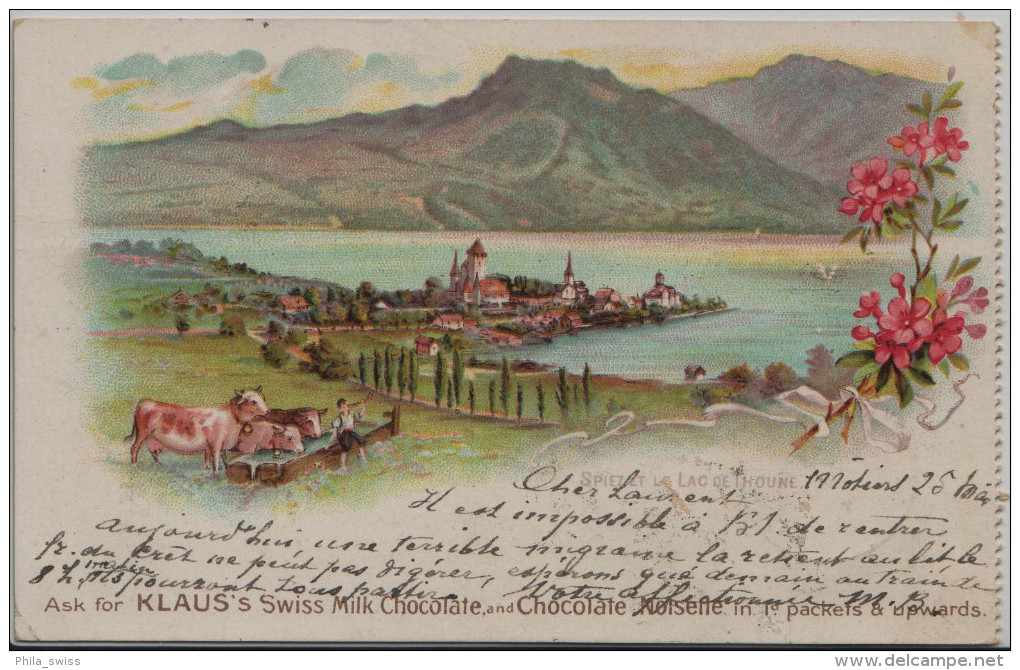 SPIEZ ET LE LAC DE THOUNE.
Môtiers 25
Cher Laurent
Il est impossible à Bl. de rentrer
aujourd'hui, une terrible migrane la retient au lit le
fr. du Crêt ne peut pas digérer, esperons que demain au train de
8 h. matin ils pourront tous partir. Votre affectionnée M. B.
Ask for KLAUS's Swiss Milk Chocolate, and Chocolate Noisette in 1d packets & upwards.
Phila_swiss
delcampe.net